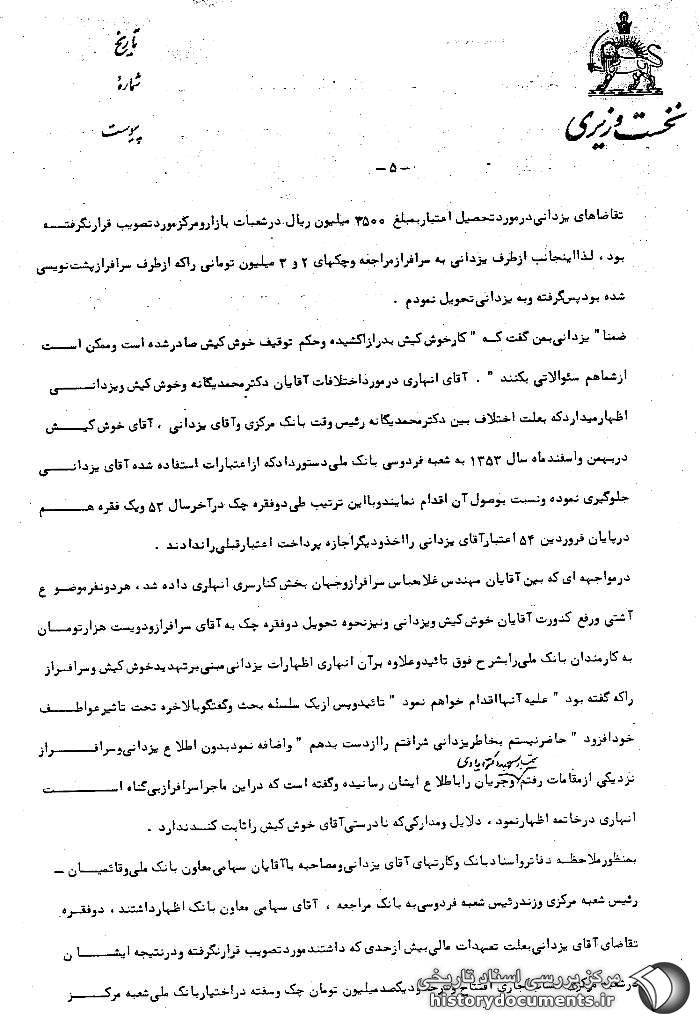 تاریخ
شمارهٔ
پیوست
نخست وزیری
-۵-
تقاضاهای یزدانی در مورد تحصیل اعتبار بمبلغ ۳۵۰۰ میلیون ریال در شعبات بازار و مرکز مورد تصویب قرار نگرفتـــه
بود ، لذا اینجانب از طرف یزدانی به سرافراز مراجعه و چکهای ۲ و ۳ میلیون تومانی را که از طرف سرافراز پشت نویسی
شده بود پس گرفته و به یزدانی تحویل نمودم .
ضمنا" یزدانی بمن گفت کـه " کار خوش کیش بدرازا کشیده و حکم توقیف خوش کیش صادر شده است و ممکن اســـت
از شما هم سئوالاتی بکنند " . آقای انهاری در مورد اختلافات آقایان دکتر محمد یگانه و خوش کیش و یزدانـــی
اظهار میدارد که بعلت اختلاف بین دکتر محمد یگانه رئیس وقت بانک مرکزی و آقای یزدانی ، آقای خوش کیـــش
در بهمن و اسفند ماه سال ۱۳۵۳ به شعبه فردوسی بانک ملی دستور داد که از اعتبارات استفاده شده آقای یزدانـــی
جلوگیری نموده و نسبت بوصول آن اقدام نمایند و باین ترتیب طی دو فقره چک در آخر سال ۵۳ و یک فقره هـــم
در پایان فروردین ۵۴ اعتبار آقای یزدانی را اخذ و دیگر اجازه پرداخت اعتبار قبلی را ندادند .
در مواجهه ای که بین آقایان مهندس غلامعباس سرافراز و جهان بخش کنار سری انهاری داده شد ، هر دو نفر موضـوع
آشتی و رفع کدورت آقایان خوش کیش و یزدانی و نیز نحوه تحویل دو فقره چک به آقای سرافراز و دویست هزار تومـــان
به کارمندان بانک ملی را بشرح فوق تائید و علاوه بر آن انهاری اظهارات یزدانی مبنی بر تهدید خوش کیش و سرافــراز
را که گفته بود " علیه آنها اقدام خواهم نمود " تائید و پس از یک سلسله بحث و گفتگو بالاخره تحت تاثیر عواطــف
خود افزود " حاضر نیستم بخاطر یزدانی شرافتم را از دست بدهم " و اضافه نمود بدون اطلاع یزدانی و سرافـــراز
نزد یکی از مقامات رفتم و جریان را باطلاع ایشان رسانیده و گفته است که در این ماجرا سرافراز بی گناه اســـت
انهاری در خاتمه اظهار نمود ، دلایل و مدارکی که نادرستی آقای خوش کیش را ثابت کند ندارد .
بمنظور ملاحظه دفاتر و اسناد بانک و کارتهای آقای یزدانی و مصاحبه با آقایان سهامی معاون بانک ملی و قائمیــان -
رئیس شعبه مرکزی و زند رئیس شعبه فردوسی به بانک مراجعه ، آقای سهامی معاون بانک اظهار داشتند ، دو فقــره
تقاضای آقای یزدانی بعلت تعهدات مالی بیش از حدی که داشتند مورد تصویب قرار نگرفته و در نتیجه ایشـــان
در شعبه مرکزی حساب جاری افتتاح و در حدود یکصد میلیون تومان چک و سفته در اختیار بانک ملی شعبه مرکـــز
مرکز بررسی اسناد تاریخی
historydocuments.ir